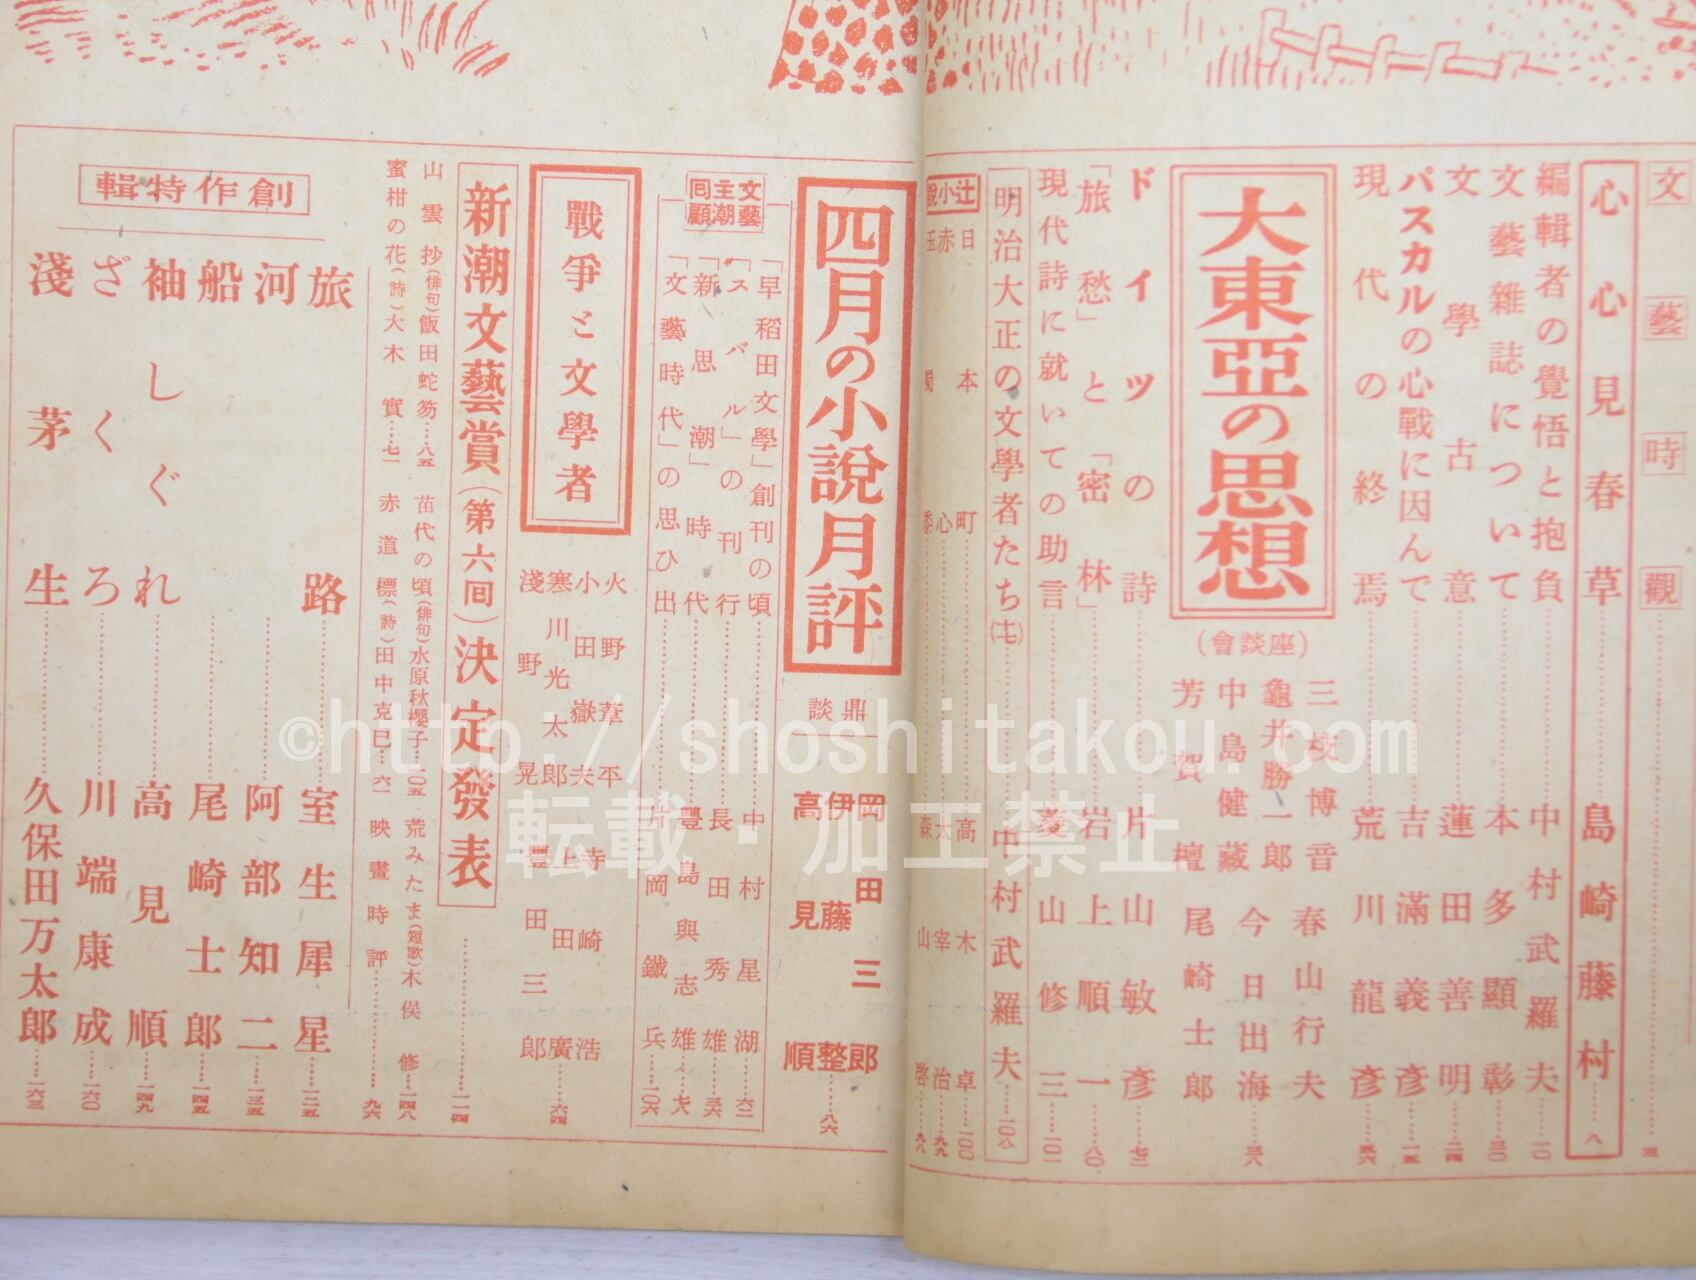 文藝時觀……三
心心見春草 島崎藤村……八
編輯者の覺悟と抱負 中村武羅夫……一〇
文藝雜誌について……本多顯彰……三〇
文學古意……蓮田善明……二四
パスカルの心戰に因んで……吉滿義彥……一五
現代の終焉……荒川龍彥……五六
大東亞の思想
(座談會)
三枝博音
龜井勝一郎
中島健藏
芳賀檀
春山行夫
今日出海……三八
尾崎士郎
ドイツの詩……片山敏彥……七二
「旅愁」と「密林」……岩上順一……八〇
現代詩に就いての助言……菱山修三……一〇一
明治大正の文學者たち(十七)……中村武羅夫……一〇八
辻小說
日本町……高木卓……一〇〇
赤心……太宰治……九九
玉蜀黍……森山啓……九八
四月の小說月評
鼎談
岡田三郎
伊藤整……八六
高見順
文藝主潮回顧
「早稻田文學」創刊の頃……中村星湖……六二
「スバル」の刊行……長田秀雄……三六
「新思潮」時代……豐島與志雄……七八
「文藝時代」の思ひ出……片岡鐵兵……一〇六
戰爭と文學者
火野葦平
小田嶽夫
寒川光太郎
淺野晃
寺崎浩
上田廣……六四
豐田三郎
新潮文藝賞(第六回)決定發表……一一四
山雲抄(俳句)飯田蛇笏……八五 苗代の頃(俳句)水原秋櫻子…一〇五 荒みたま(短歌)木俣修…一四八
蜜柑の花(詩)大木實……七一 赤道標(詩)田中克巳……六一 映畫時評……九六
創作特輯
旅路……室生犀星……一二五
河……阿部知二……一三五
船……尾崎士郎……一四五
袖しぐれ……高見順……一四九
ざくろ……川端康成……一六〇
淺茅生……久保田万太郎……一六三
©http://shoshitakou.com
転載・加工禁止